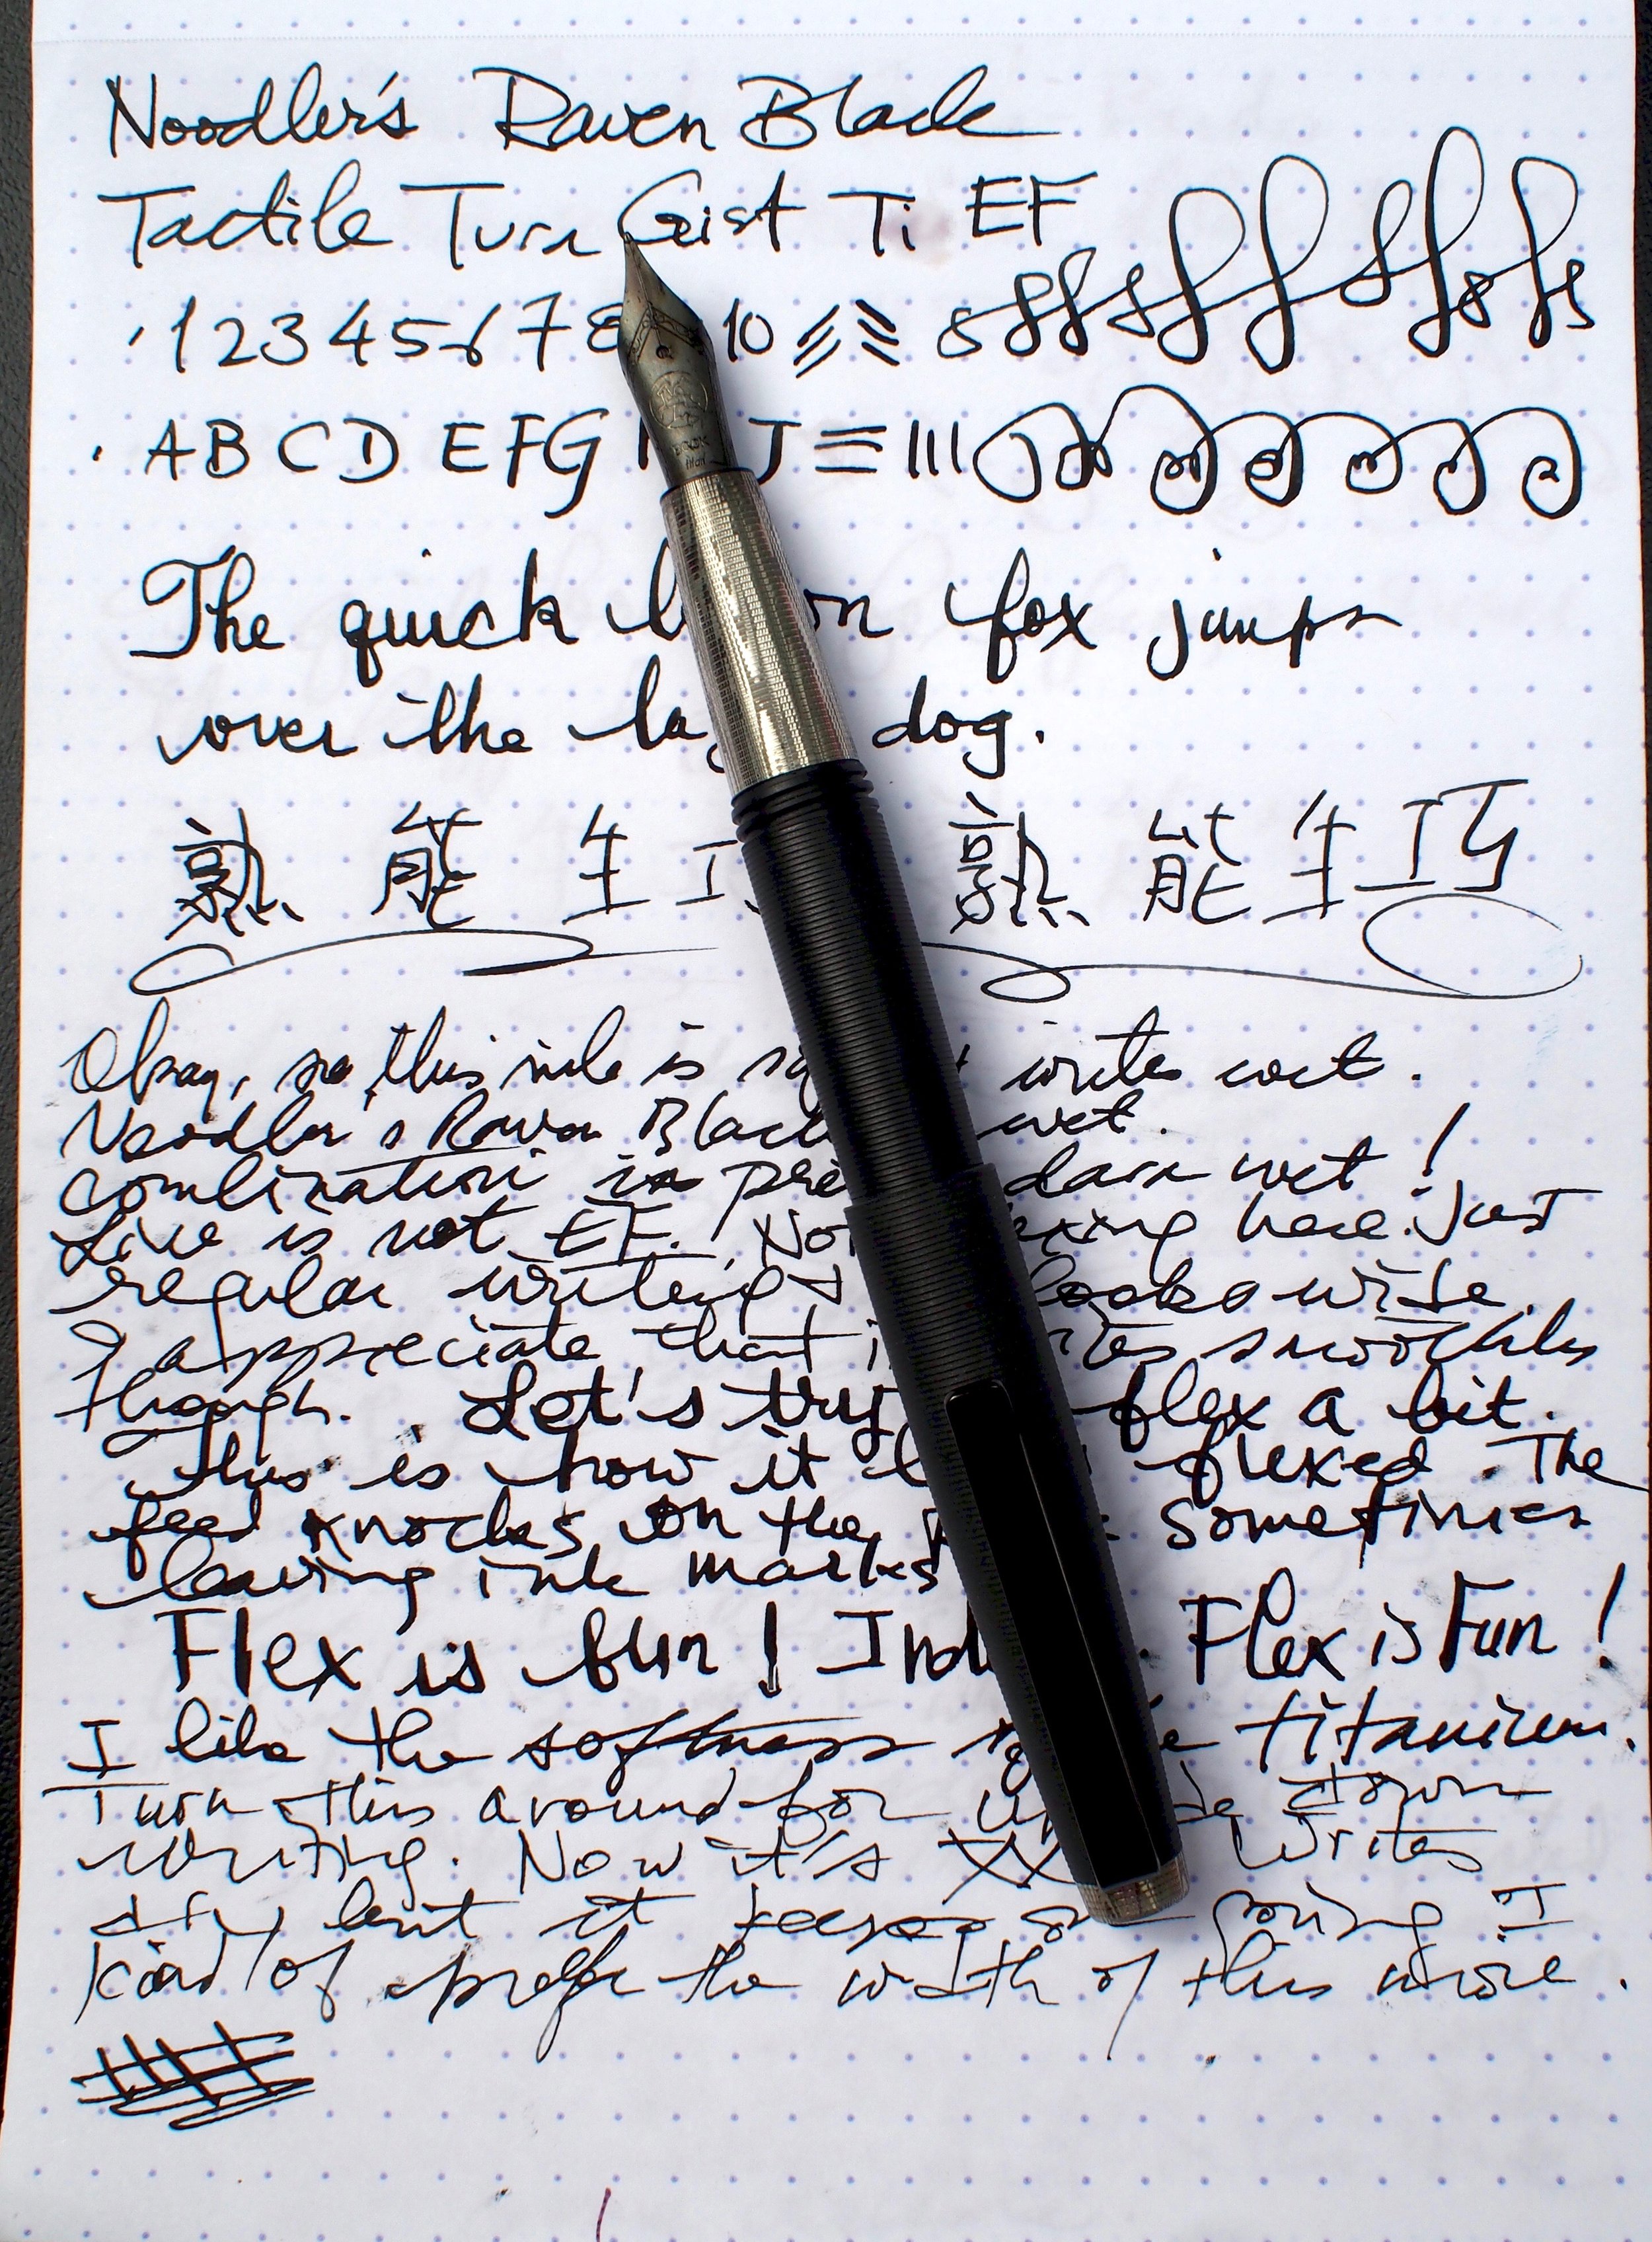 Noodler's Raven Black
Tactile Turn Gist Ti EF
1 2 3 4 5 6 7 8 10
A B C D E F G J
The quick fox jumps
over the dog.
熟 能 生 熟 能 生 巧
Okay, so this nib is write wet.
Noodler's Raven Black wet.
combination is darn wet!
Line is not EF. here. Just
regular writing looks wise.
I appreciate that smoothly
though. Let's try flex a bit.
this is how it flexed. The
feed knocks on the sometimes
leaving ink marks
Flex is fun! Flex is Fun!
I like the softness titanium.
Turn this around for down
writing. Now it's XX Writes
dry but it keeps on going I
kind of prefer the width of this more.